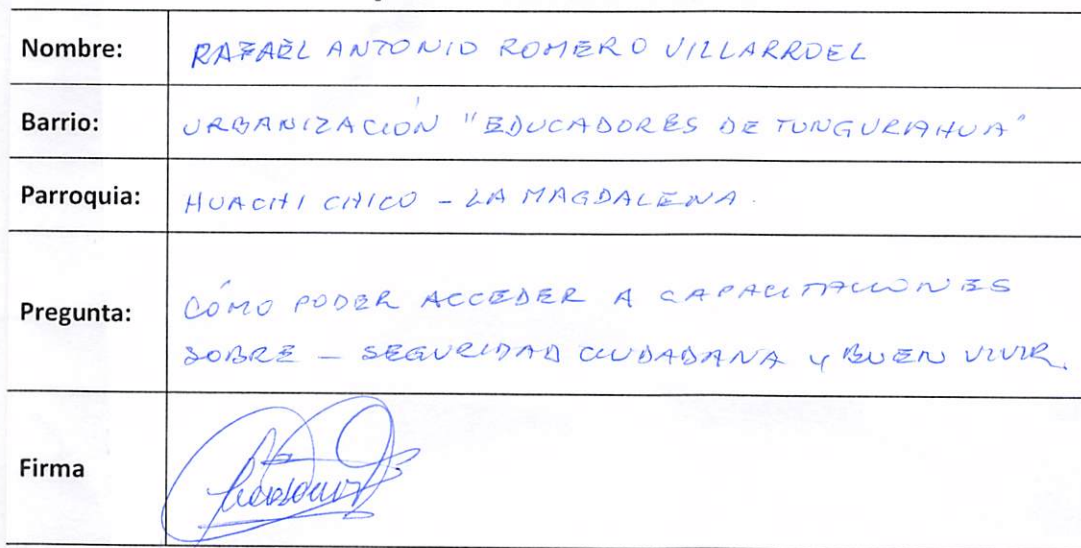 Nombre: RAFAEL ANTONIO ROMERO VILLARROEL
Barrio: URBANIZACIÓN "EDUCADORES DE TUNGURAHUA"
Parroquia: HUACHI CHICO - LA MAGDALENA.
Pregunta: CÓMO PODER ACCEDER A CAPACITACIONES
SOBRE - SEGURIDAD CIUDADANA Y BUEN VIVIR.
Firma